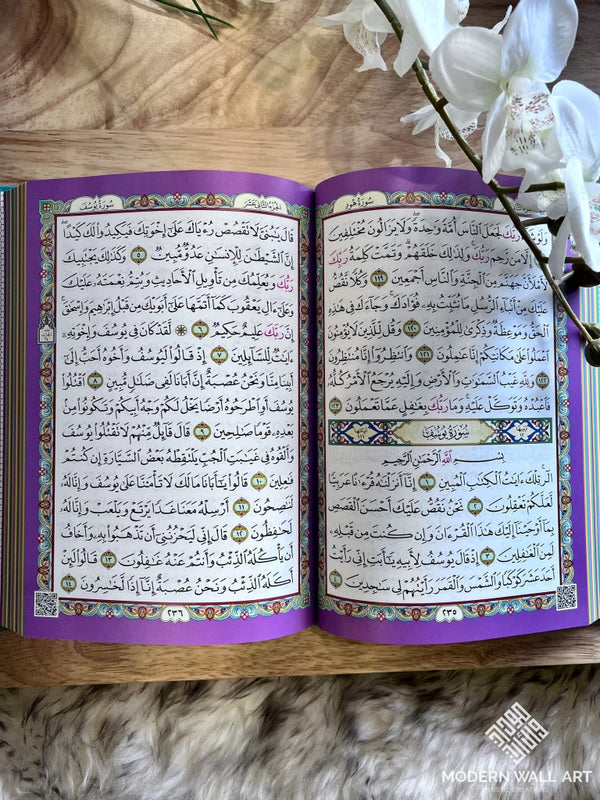 سُورَةُ هُودٍ
وَلَوْ شَآءَ رَبُّكَ لَجَعَلَ ٱلنَّاسَ أُمَّةً وَٰحِدَةً ۖ وَلَا يَزَالُونَ مُخْتَلِفِينَ
١١٨ إِلَّا مَن رَّحِمَ رَبُّكَ ۚ وَلِذَٰلِكَ خَلَقَهُمْ ۗ وَتَمَّتْ كَلِمَةُ رَبِّكَ
لَأَمْلَأَنَّ جَهَنَّمَ مِنَ ٱلْجِنَّةِ وَٱلنَّاسِ أَجْمَعِينَ ١١٩ وَكُلًّا نَّقُصُّ
عَلَيْكَ مِنْ أَنۢبَآءِ ٱلرُّسُلِ مَا نُثَبِّتُ بِهِۦ فُؤَادَكَ ۚ وَجَآءَكَ فِى هَٰذِهِ
ٱلْحَقُّ وَمَوْعِظَةٌ وَذِكْرَىٰ لِلْمُؤْمِنِينَ ١٢٠ وَقُل لِّلَّذِينَ لَا يُؤْمِنُونَ
ٱعْمَلُوا۟ عَلَىٰ مَكَانَتِكُمْ إِنَّا عَٰمِلُونَ ١٢١ وَٱنتَظِرُوٓا۟ إِنَّا مُنتَظِرُونَ
١٢٢ وَلِلَّهِ غَيْبُ ٱلسَّمَٰوَٰتِ وَٱلْأَرْضِ وَإِلَيْهِ يُرْجَعُ ٱلْأَمْرُ كُلُّهُۥ
فَٱعْبُدْهُ وَتَوَكَّلْ عَلَيْهِ ۚ وَمَا رَبُّكَ بِغَٰفِلٍ عَمَّا تَعْمَلُونَ ١٢٣
سُورَةُ يُوسُفَ
بِسْمِ ٱللَّهِ ٱلرَّحْمَٰنِ ٱلرَّحِيمِ
الٓر ۚ تِلْكَ ءَايَٰتُ ٱلْكِتَٰبِ ٱلْمُبِينِ ١ إِنَّآ أَنزَلْنَٰهُ قُرْءَٰنًا عَرَبِيًّا
لَّعَلَّكُمْ تَعْقِلُونَ ٢ نَحْنُ نَقُصُّ عَلَيْكَ أَحْسَنَ ٱلْقَصَصِ
بِمَآ أَوْحَيْنَآ إِلَيْكَ هَٰذَا ٱلْقُرْءَانَ وَإِن كُنتَ مِن قَبْلِهِۦ
لَمِنَ ٱلْغَٰفِلِينَ ٣ إِذْ قَالَ يُوسُفُ لِأَبِيهِ يَٰٓأَبَتِ إِنِّى رَأَيْتُ
أَحَدَ عَشَرَ كَوْكَبًا وَٱلشَّمْسَ وَٱلْقَمَرَ رَأَيْتُهُمْ لِى سَٰجِدِينَ ٤
٢٣٥
الجزء الثاني عشر
سُورَةُ يُوسُفَ
قَالَ يَٰبُنَىَّ لَا تَقْصُصْ رُءْيَاكَ عَلَىٰٓ إِخْوَتِكَ فَيَكِيدُوا۟ لَكَ كَيْدًا ۖ
إِنَّ ٱلشَّيْطَٰنَ لِلْإِنسَٰنِ عَدُوٌّ مُّبِينٌ ٥ وَكَذَٰلِكَ يَجْتَبِيكَ
رَبُّكَ وَيُعَلِّمُكَ مِن تَأْوِيلِ ٱلْأَحَادِيثِ وَيُتِمُّ نِعْمَتَهُۥ عَلَيْكَ
وَعَلَىٰٓ ءَالِ يَعْقُوبَ كَمَآ أَتَمَّهَا عَلَىٰٓ أَبَوَيْكَ مِن قَبْلُ إِبْرَٰهِيمَ وَإِسْحَٰقَ ۚ
إِنَّ رَبَّكَ عَلِيمٌ حَكِيمٌ ٦ ۞ لَّقَدْ كَانَ فِى يُوسُفَ وَإِخْوَتِهِۦٓ
ءَايَٰتٌ لِّلسَّآئِلِينَ ٧ إِذْ قَالُوا۟ لَيُوسُفُ وَأَخُوهُ أَحَبُّ إِلَىٰٓ
أَبِينَا مِنَّا وَنَحْنُ عُصْبَةٌ إِنَّ أَبَانَا لَفِى ضَلَٰلٍ مُّبِينٍ ٨ ٱقْتُلُوا۟
يُوسُفَ أَوِ ٱطْرَحُوهُ أَرْضًا يَخْلُ لَكُمْ وَجْهُ أَبِيكُمْ وَتَكُونُوا۟ مِنۢ
بَعْدِهِۦ قَوْمًا صَٰلِحِينَ ٩ قَالَ قَآئِلٌ مِّنْهُمْ لَا تَقْتُلُوا۟ يُوسُفَ
وَأَلْقُوهُ فِى غَيَٰبَتِ ٱلْجُبِّ يَلْتَقِطْهُ بَعْضُ ٱلسَّيَّارَةِ إِن كُنتُمْ
فَٰعِلِينَ ١٠ قَالُوا۟ يَٰٓأَبَانَا مَا لَكَ لَا تَأْمَ۫نَّا عَلَىٰ يُوسُفَ وَإِنَّا لَهُۥ
لَنَٰصِحُونَ ١١ أَرْسِلْهُ مَعَنَا غَدًا يَرْتَعْ وَيَلْعَبْ وَإِنَّا لَهُۥ
لَحَٰفِظُونَ ١٢ قَالَ إِنِّى لَيَحْزُنُنِىٓ أَن تَذْهَبُوا۟ بِهِۦ وَأَخَافُ
أَن يَأْكُلَهُ ٱلذِّئْبُ وَأَنتُمْ عَنْهُ غَٰفِلُونَ ١٣ قَالُوا۟ لَئِنْ
أَكَلَهُ ٱلذِّئْبُ وَنَحْنُ عُصْبَةٌ إِنَّآ إِذًا لَّخَٰسِرُونَ ١٤
٢٣٦
MODERN WALL ART
ARTISTIC CREATIONS